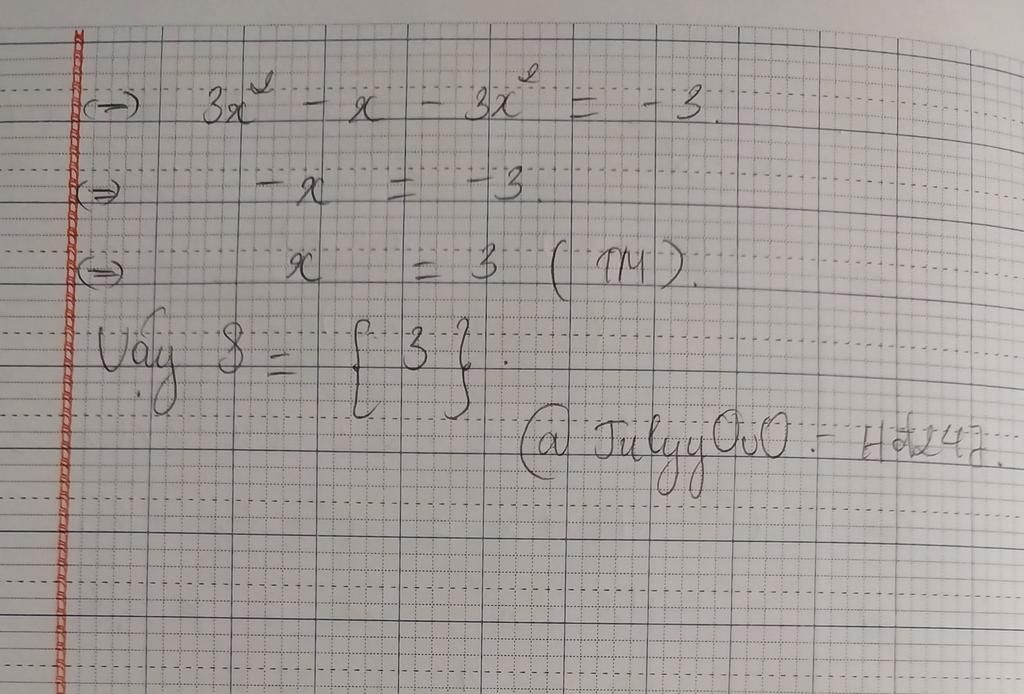 (=) 3x² - x - 3x² = - 3.
(=) - x = - 3.
(=) x = 3 (TM).
Vậy S = { 3 }.
@ JulyyOvO - Hdz247.